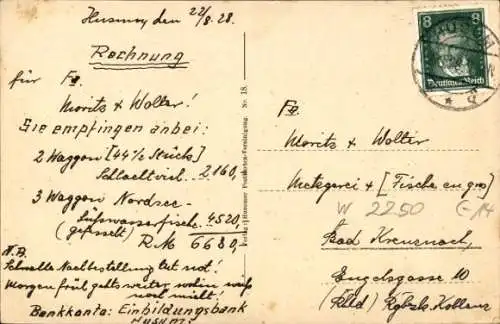 Husum, den 22/8. 28.
Rechnung
für Fa.
Moritz & Wolter!
Sie empfingen anbei:
2 Waggon [44½ Stück]
Schlachtvieh. 2160,
3 Waggon Nordsee-
Süßwasserfische. 4520,
(gefesselt)
R.M 6680,
N.B.
Schnelle Nachbestellung tut not!
Morgen früh gehts weiter wohin weiß
noch nicht!
Bankkonto: Einbildungsbank
Husum.
Verlag: Husumer Postkarten-Vereinigung. Nr. 18.
8 8
Deutsches Reich
HUSUM
Fa.
Moritz & Wolter
Metzgerei & [Fische en gros]
W 2250 €14
Bad Kreuznach
Engelsgasse 10
(Rhld) Rgbzk. Koblenz